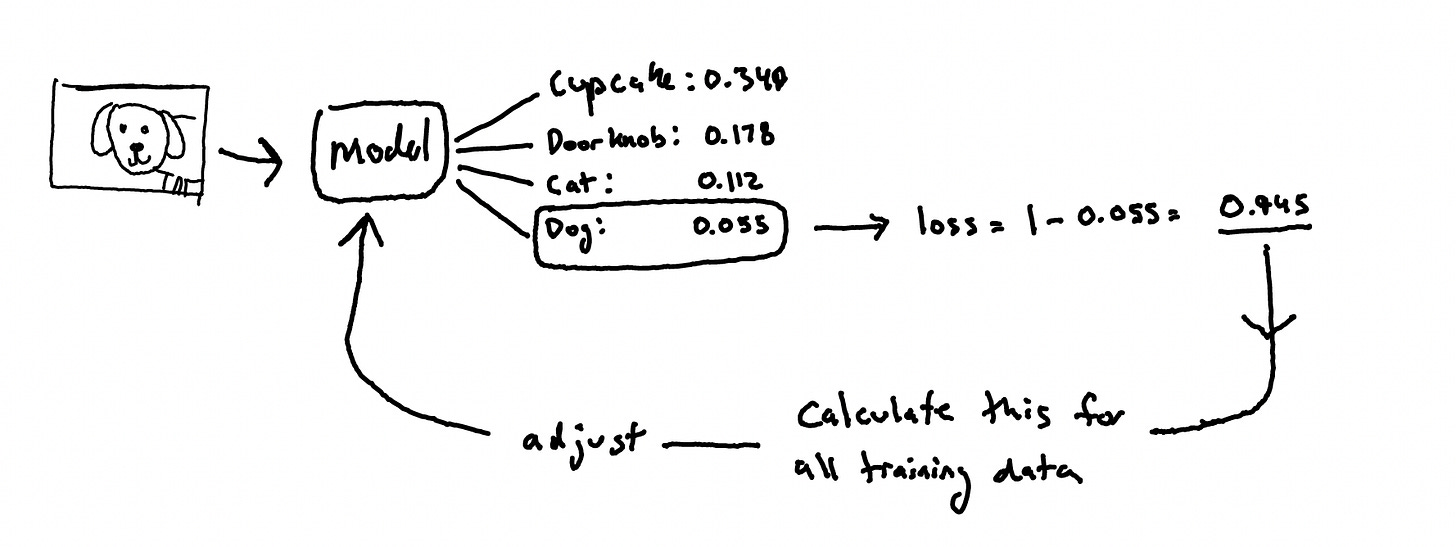 model
Cupcake: 0.340
Doorknob: 0.178
Cat: 0.112
Dog: 0.055
loss = 1 - 0.055 = 0.945
Calculate this for
all training data
adjust